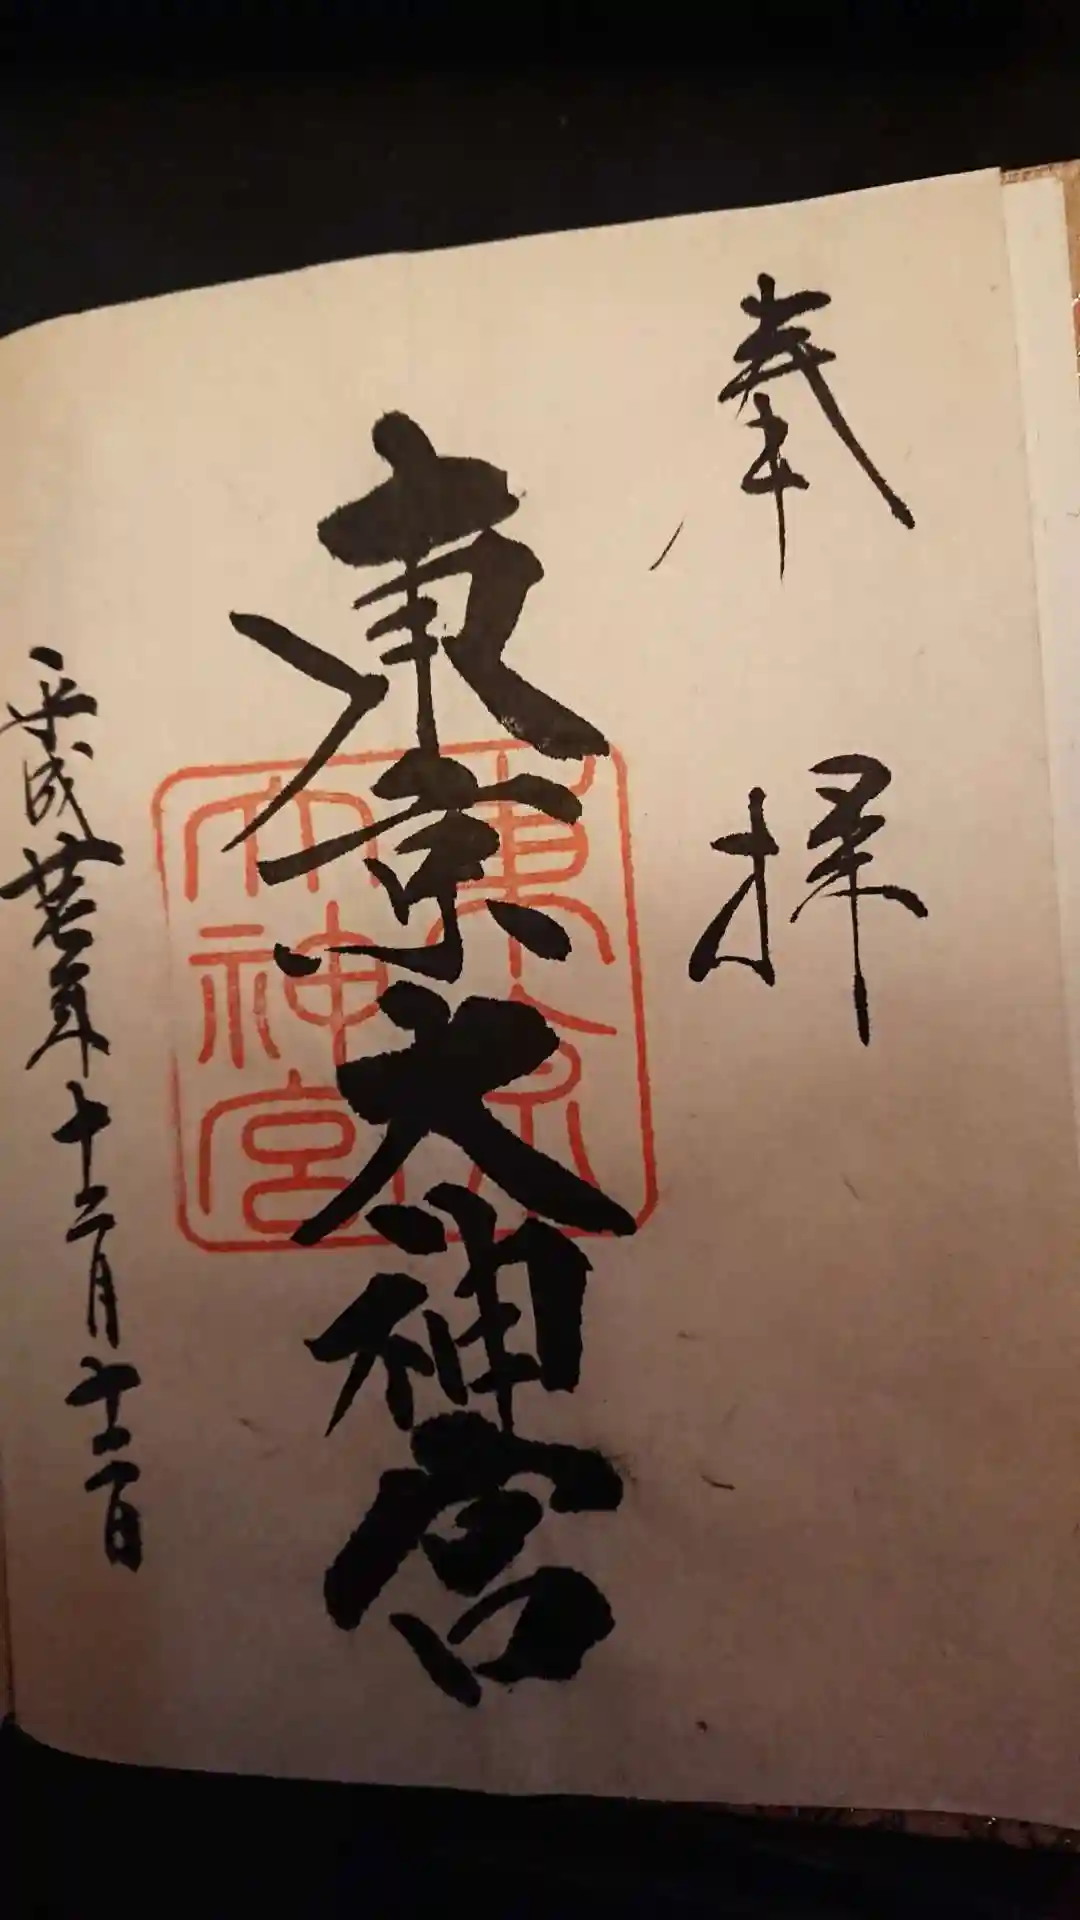 奉拝
東京大神宮
東京
大神宮
平成廿年十二月十日